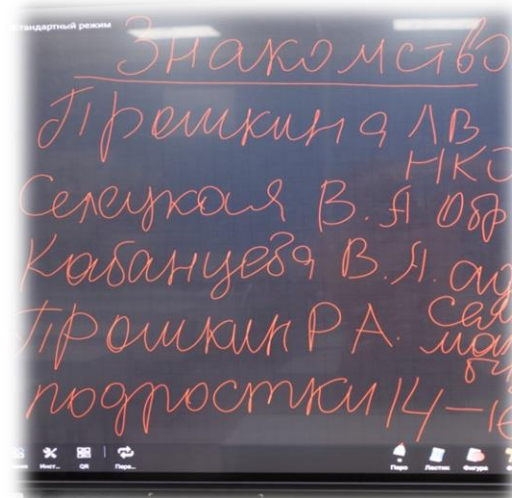 Стандартный режим
Знакомство
Прошкина ЛВ
НКО
Селецкая В.Я Обр
Кабанцева В.Я. ад
Прошкин Р А. сам
подростки 14-16
QR Перо Ластик Фигура